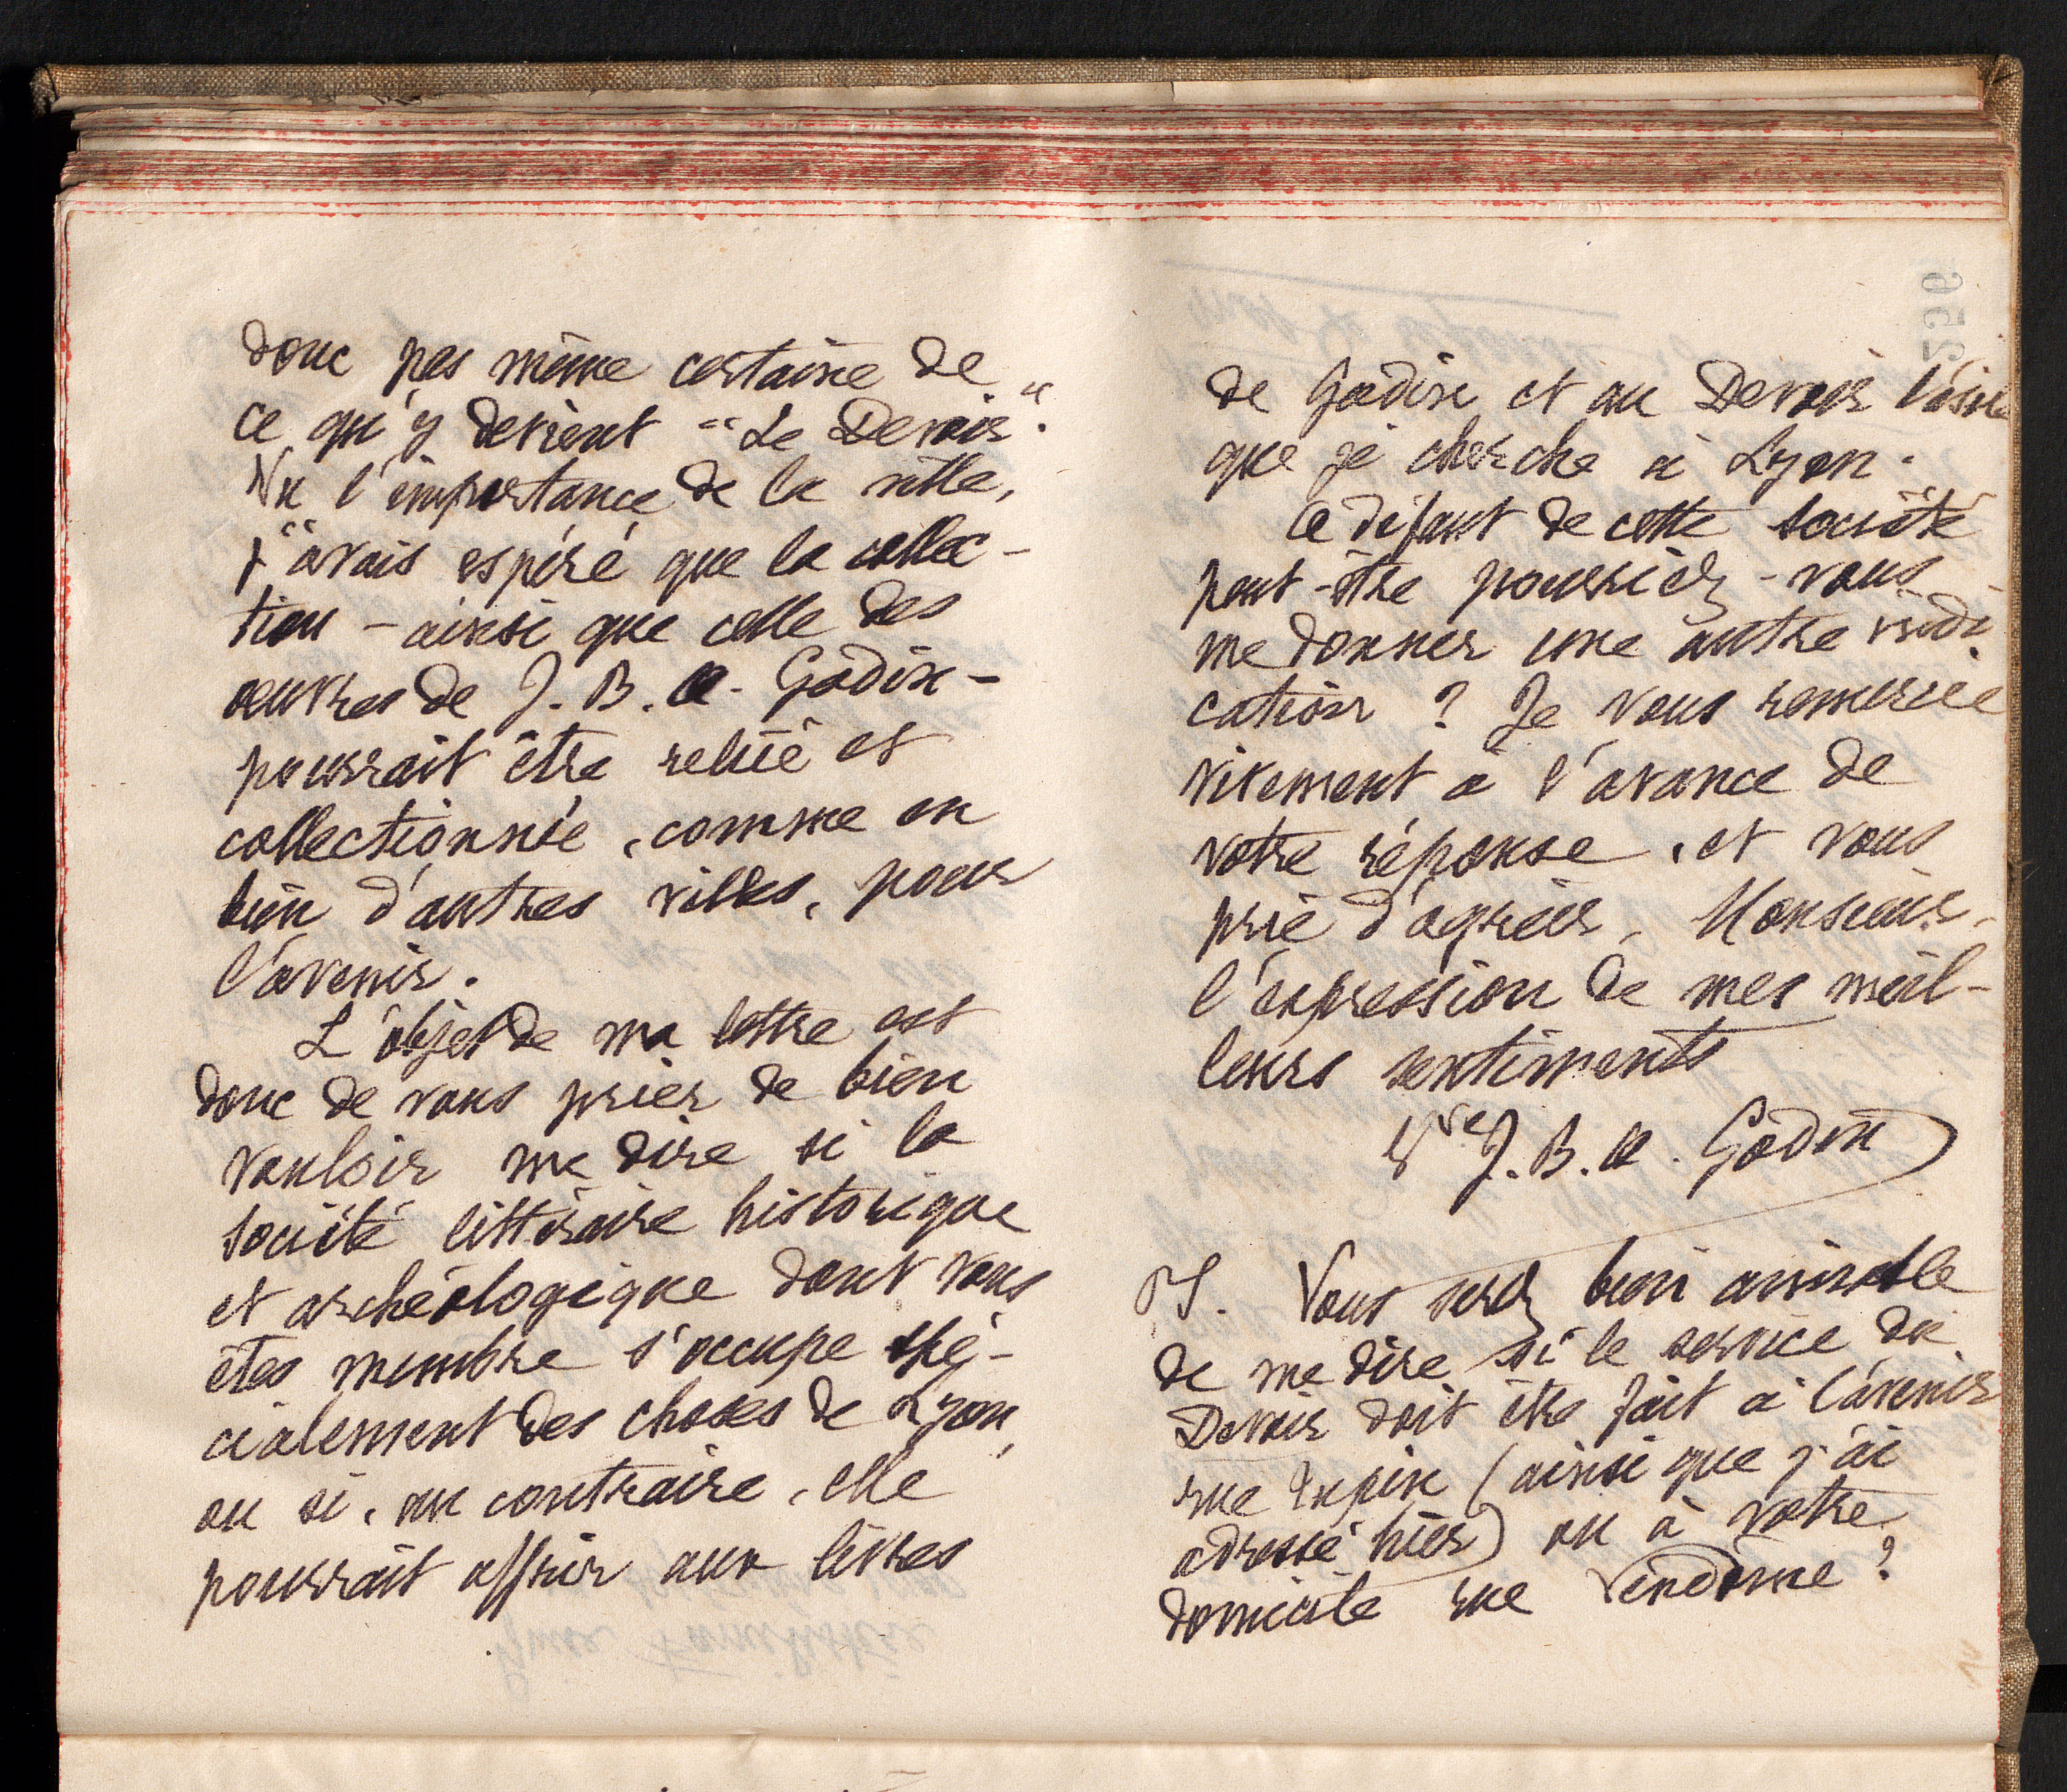 donc pas même certaine de
ce qu'y devient "Le Devoir".
Vu l'importance de la ville,
j'avais espéré que la collec-
tion - ainsi que celle des
œuvres de J. B. A. Godin -
pourrait être reliée et
collectionnée, comme en
bien d'autres villes, pour
l'avenir.
L'objet de ma lettre est
donc de vous prier de bien
vouloir me dire si la
société littéraire historique
et archéologique dont vous
êtes membre s'occupe spé-
cialement des choses de Lyon,
ou si, au contraire, elle
pourrait offrir aux livres
de Godin et au Devoir l'asile
que je cherche à Lyon.
A défaut de cette société
peut-être pourriez-vous
me donner une autre indi-
cation ? Je vous remercie
vivement à l'avance de
votre réponse, et vous
prie d'agréer, Monsieur,
l'expression de mes meil-
leurs sentiments
Vve J. B. A. Godin
PS. Vous serez bien aimable
de me dire si le service du
Devoir doit être fait à l'avenir
rue Tupin (ainsi que j'ai
adressé hier) ou à votre
domicile rue Vendôme ?
256